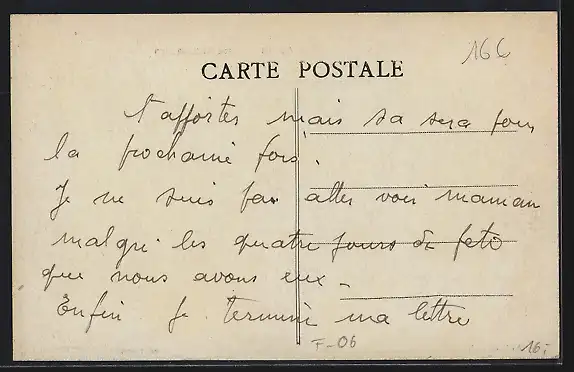 166
CARTE POSTALE
t'apporter mais sa sera pour
la prochaine fois.
Je ne suis pas aller voir maman
malgré les quatre jours de fete
que nous avons eux.
Enfin je termine ma lettre
F-06
16,-